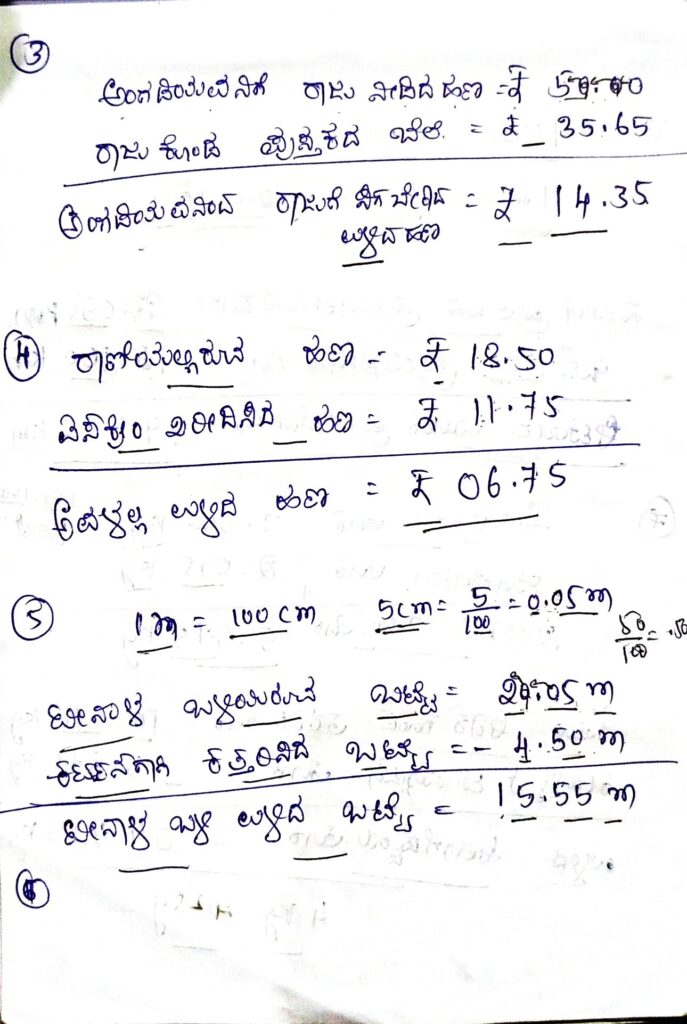 3
ಅಂಗಡಿಯವನಿಗೆ ರಾಜು ನೀಡಿದ ಹಣ = ₹ 50.00
ರಾಜು ಕೊಂಡ ಪುಸ್ತಕದ ಬೆಲೆ = ₹ 35.65
ಅಂಗಡಿಯವನಿಂದ ರಾಜುಗೆ ಸಿಗಬೇಕಾದ = ₹ 14.35
ಉಳಿದ ಹಣ
4 ರಾಣಿಯಲ್ಲಿರುವ ಹಣ = ₹ 18.50
ಐಸ್‌ಕ್ರೀಂ ಖರೀದಿಸಿದ ಹಣ = ₹ 11.75
ಅವಳಲ್ಲಿ ಉಳಿದ ಹಣ = ₹ 06.75
5 1m = 100 cm 5cm = 5/100 = 0.05m
50/100 = .50
ಟೀನಾಳ ಬಳಿಯಿರುವ ಬಟ್ಟೆ = 20.05 m
ಕತ್ತರಿಸಿದ ಬಟ್ಟೆ = - 4.50 m
ಟೀನಾಳ ಬಳಿ ಉಳಿದ ಬಟ್ಟೆ = 15.55 m
6